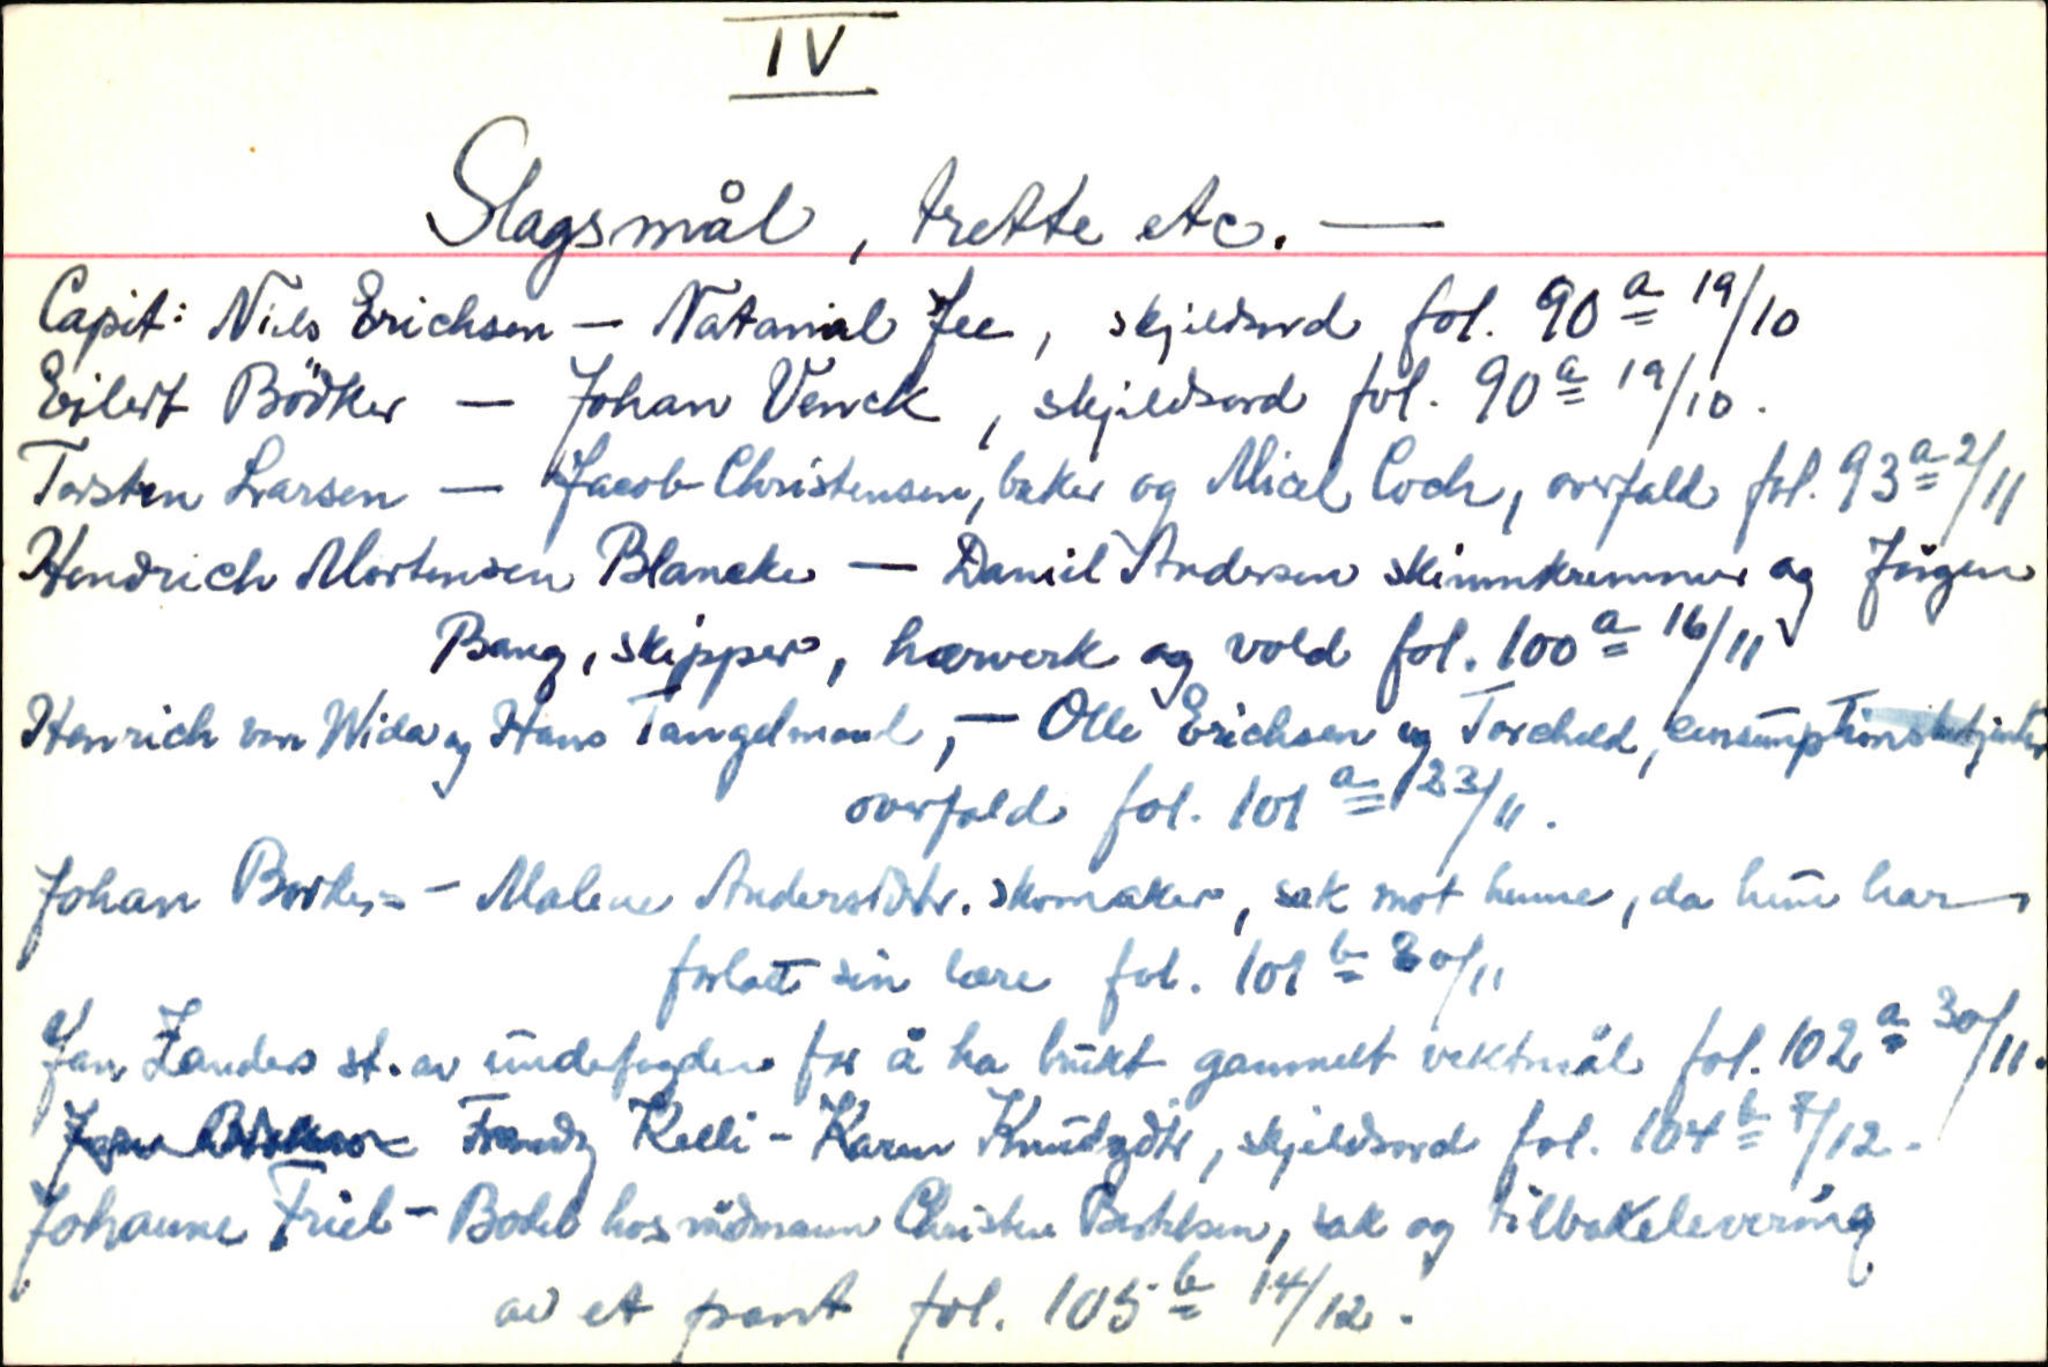 IV
Slagsmål, trette etc. —
Capit: Niels Erichsen — Natanial Jee, skjeldsord fol. 90 a 19/10
Eilert Bödker — Johan Venck, skjeldsord fol. 90 a 19/10.
Torsten Larsen — Jacob Christensen, baker og Micel Coch, overfald fol. 93 a 2/11
Hendrich Mortensen Blancke — Daniel Andersen skinnkremmer og Jörgen
Bang, skipper, hærverk og vold fol. 100 a 16/11
Henrich von Wida og Hans Tangelmand, — Olle Erichsen og Torcheld, consumptionsbetjenter
overfald fol. 101 a 23/11.
Johan Borkes - Malene Andersdtr. skomaker, sak mot henne, da hun har
forlatt sin lære fol. 101 b 30/11
Jan Zanders st. av underfogden for å ha brukt gammelt vektmål fol. 102 a 30/11.
Frandz Kelli - Karen Knudzdtr, skjeldsord fol. 104 b 7/12.
Johanne Friel - Bodel hos rådmann Christen Bertelsen, sak og tilbakelevering
av et pant fol. 105 b 14/12.